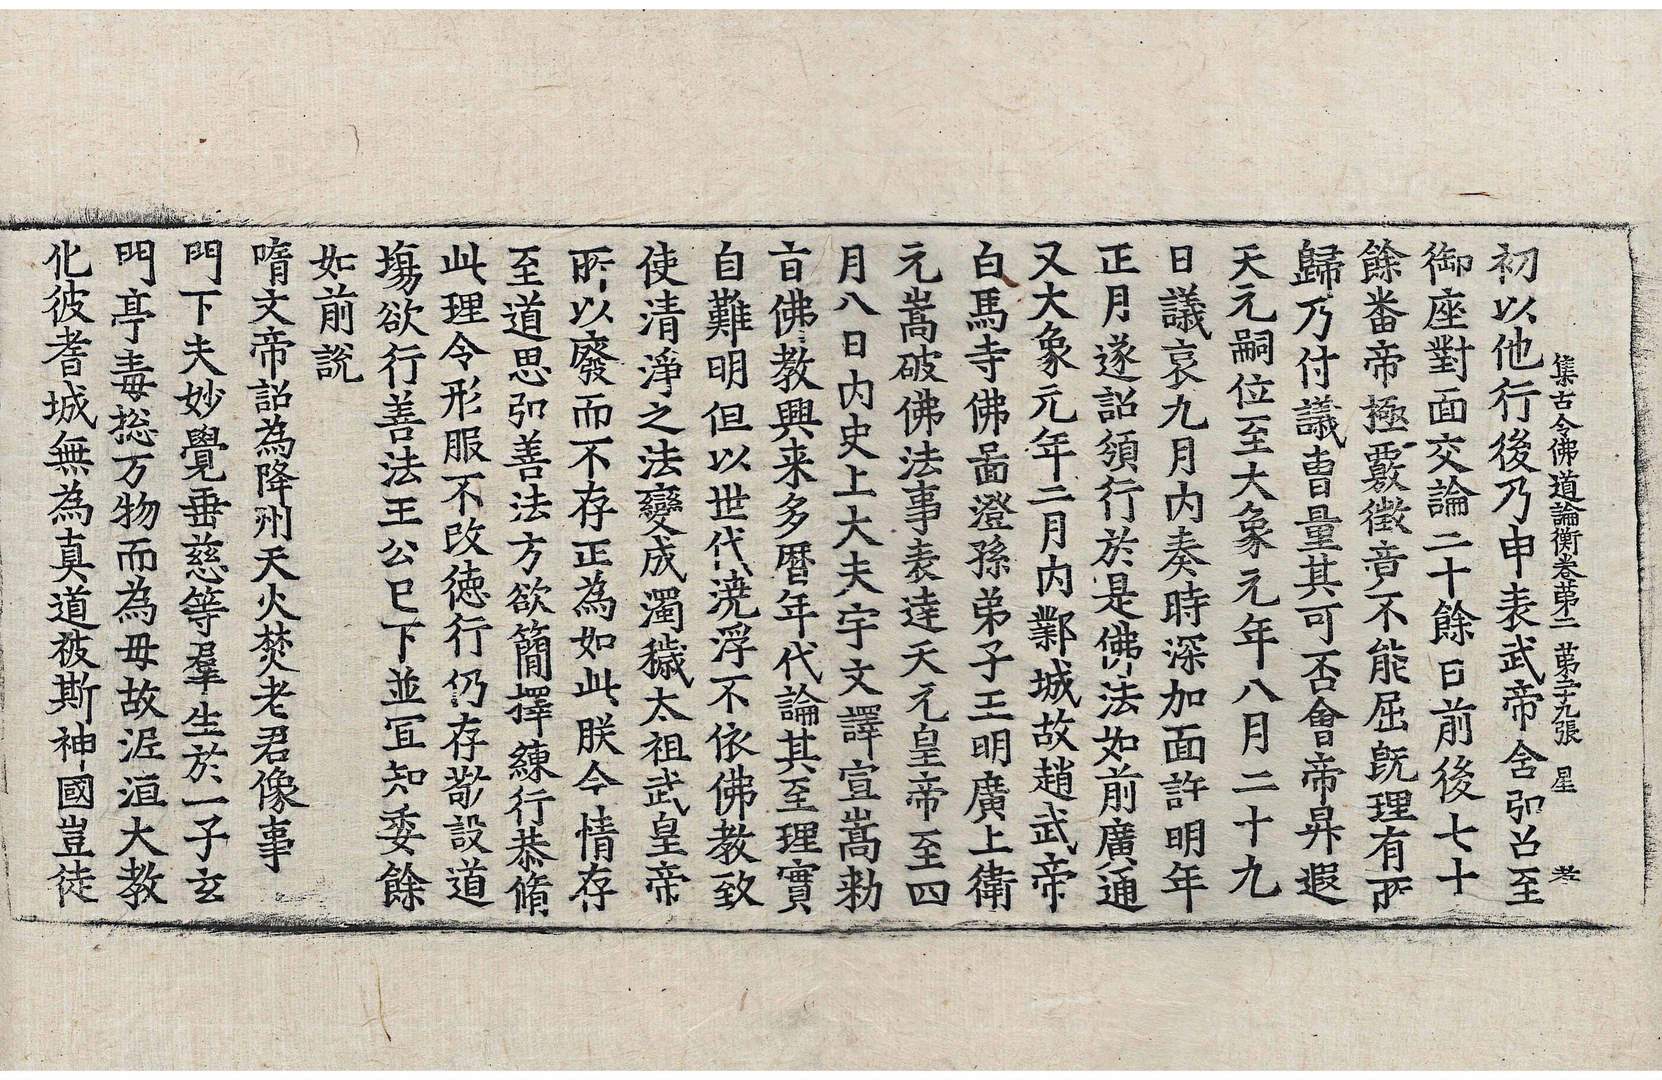 集古今佛道論衡卷第二 第二十九張 星
初以他行後乃申表武帝舍弘召至
御座對面交論二十餘日前後七十
餘番帝極覈徵竟不能屈旣理有所
歸乃付議曺量其可否會帝昇遐
天元嗣位至大象元年八月二十九
日議哀九月內奏時深加面許明年
正月遂詔頒行於是佛法如前廣通
又大象元年二月內鄴城故趙武帝
白馬寺佛啚澄孫弟子王明廣上衛
元嵩破佛法事表達天元皇帝至四
月八日內史上大夫宇文譯宣嵩勑
旨佛教興来多曆年代論其至理實
自難明但以世代澆浮不依佛教致
使清淨之法變成濁穢太祖武皇帝
所以廢而不存正為如此朕今情存
至道思弘善法方欲簡擇練行恭脩
此理令形服不改德行仍存敬設道
塲欲行善法王公已下並冝知委餘
如前說
隋文帝詔為降州天火焚老君像事
門下夫妙覺垂慈等羣生於一子玄
門亭毒捴万物而為毋故泥洹大教
化彼耆城無為真道被斯神國豈徒